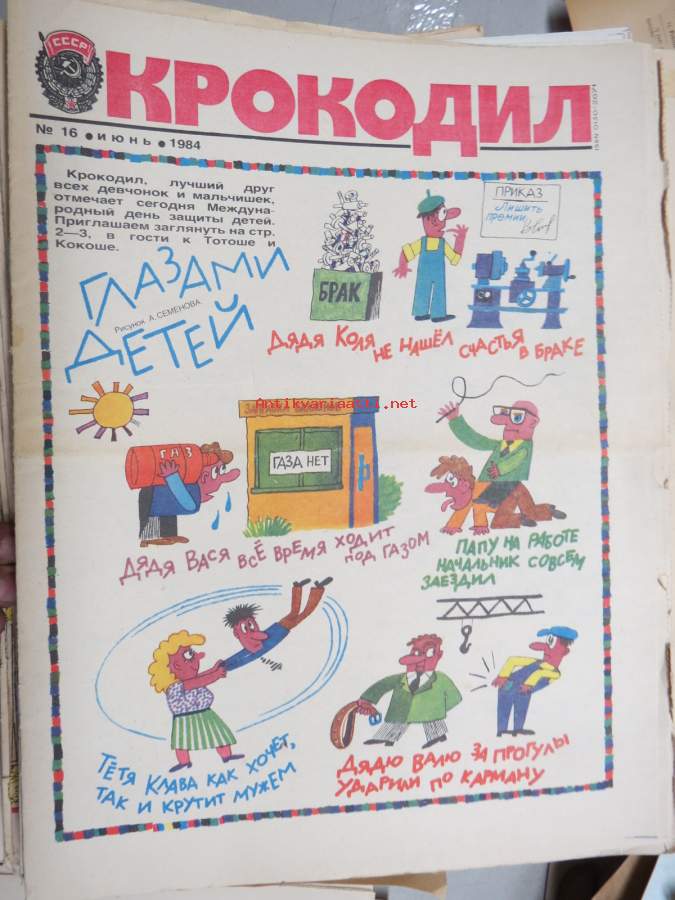 СССР
КРОКОДИЛ
№ 16 ● ИЮНЬ ● 1984
ISSN 0130-2671
Крокодил, лучший друг
всех девчонок и мальчишек,
отмечает сегодня Междуна-
родный день защиты детей.
Приглашаем заглянуть на стр.
2—3, в гости к Тотоше и
Кокоше.
ГЛАЗАМИ
ДЕТЕЙ
Рисунок А. СЕМЕНОВА.
ПРИКАЗ
Лишить
премии
БРАК
ДЯДЯ КОЛЯ НЕ НАШЁЛ СЧАСТЬЯ В БРАКЕ
Antikvariaatti.net
ГАЗ
ГАЗА НЕТ
ДЯДЯ ВАСЯ ВСЁ ВРЕМЯ ХОДИТ
ПОД ГАЗОМ
ПАПУ НА РАБОТЕ
НАЧАЛЬНИК СОВСЕМ
ЗАЕЗДИЛ
ТЁТЯ КЛАВА КАК ХОЧЕТ,
ТАК И КРУТИТ МУЖЕМ
ДЯДЮ ВАЛЮ ЗА ПРОГУЛЫ
УДАРИЛИ ПО КАРМАНУ